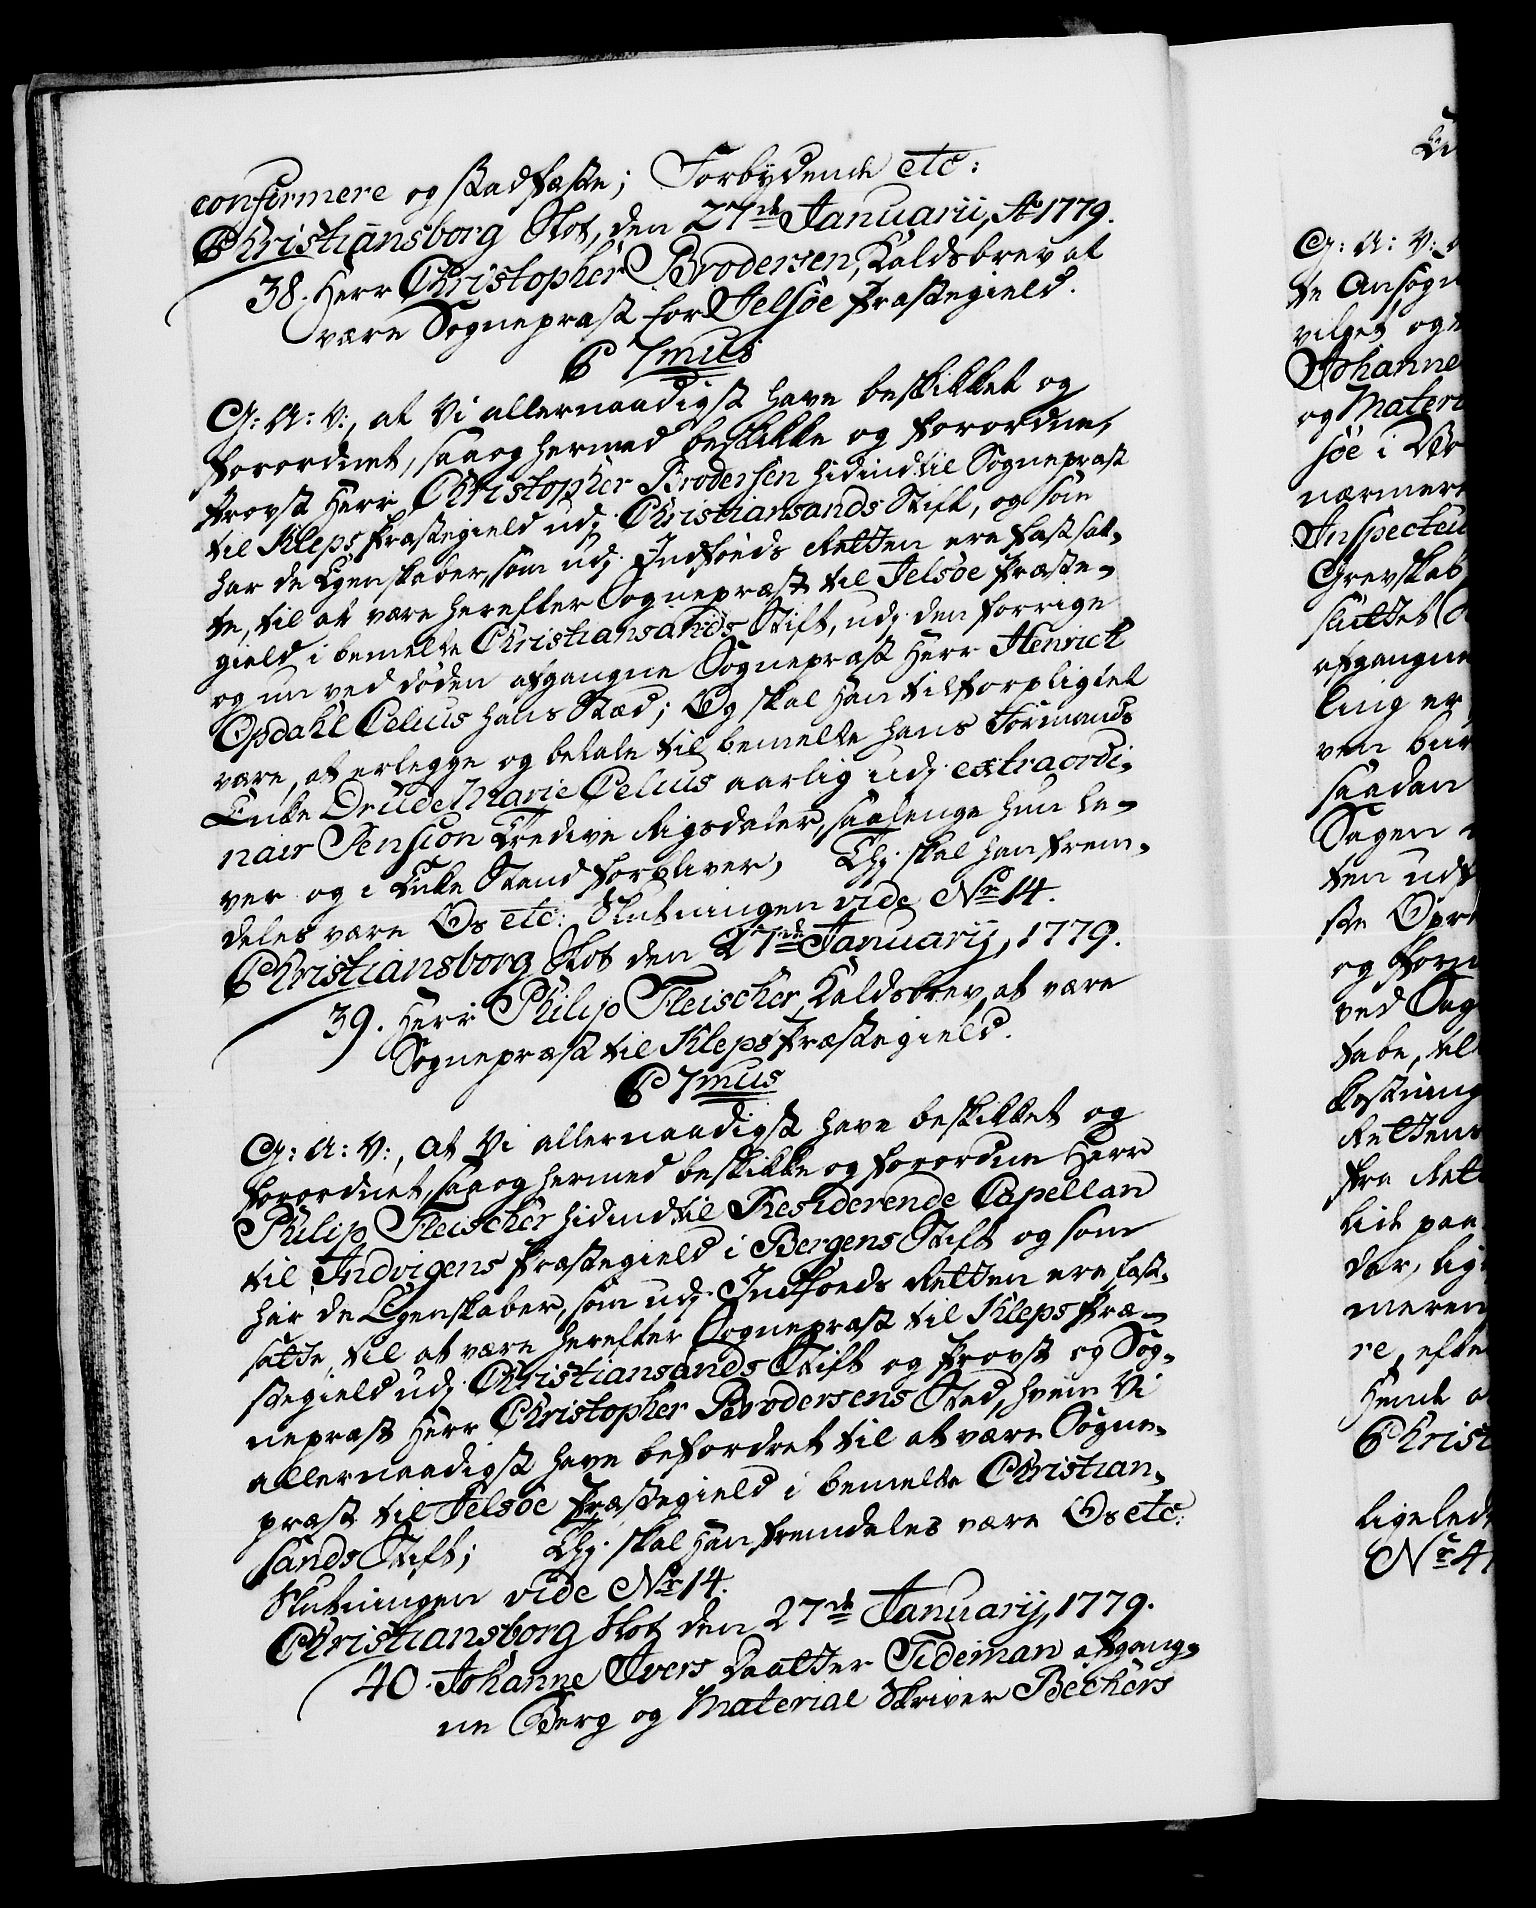 confirmere og stadfæste; Forbydende etc:
Christiansborg Slot, den 27de Januarii, Ao 1779.
38. Herr Christopher Brodersen, Kaldsbrev at
være Sognepræst for Jelsøe Præstegield.
C 7mus
G: A: V:, at Vi allernaadigst have beskikket og
forordnet, saa og hermed beskikke og forordne,
Provst Herr Christopher Brodersen hidindtil Sognepræst
til Kleps Præstegield udj Christiansands Stift, og som
har de Egenskaber, som udj Indføeds Retten ere fastsat-
te, til at være herefter Sognepræst til Jelsøe Præste-
gield i bemelte Christiansands Stift, udj den forrige
og nu ved døden afgangne Sognepræst Herr Henrich
Opdahl Celius hans Stæd; Og skal Han tilforpligtet
være, at erlegge og betale til bemelte hans Formands
Enke Drude Marie Celius aarlig udj extraordi-
nair Pension Tredive Rigsdaler, saalenge hun le-
ver og i Enke Stand forbliver, Thj skal han frem-
deles være Os etc: Slutningen vide No 14.
Christiansborg Slot den 27de Januarij, 1779.
39. Herr Philip Fleischer, Kaldsbrev at være
Sognepræst til Kleps Præstegield.
C 7mus
G: A: V:, at Vi allernaadigst have beskikket og
forordnet, saa og hermed beskikke og forordne Herr
Philip Fleischer hidindtil Residerende Capellan
til Indvigens Præstegield i Bergens Stift og som
har de Egenskaber, som udj Indføeds Retten ere fast-
satte, til at være herefter Sognepræst til Kleps Præ-
stegield udj Christiansands Stift og Provst og Sog-
nepræst Herr Christopher Brodersens Sted, hvem Vi
allernaadigst have befordret til at være Sogne-
præst til Jelsøe Præstegield i bemelte Christian-
sands Stift; Thj skal Han fremdeles være Os etc:
Slutningen vide No 14.
Christiansborg Slot den 27de Januarij, 1779.
40. Johanne Ivers Daatter Tideman afgang-
ne Berg og Material Skriver Bechers
G: A: V:
te Ansøgn
vilget og
Johanne
og Materi
søe i
nærmere
Inspecteu
Grevskab
afgangne
ling er
ven
saadan
Sagen
ten udf
ste
og
ved Sag
tabe,
kostning
Rettens
fra Rett
tid paa
der, lig
meren
re, efter
Hende
Christ
ligeled
No 4